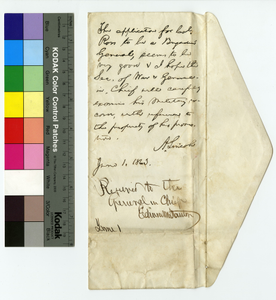 This application for Col.
Ross to be a Brigadier
General, seems to be
very good & I hope the
Sec. of War & General-
in-Chief will carefully
examine his Military re-
cord, with reference to
the propriety of his promo-
tion.
A. Lincoln
June 1, 1863.
Referred to the
General in Chief
Edwin M Stanton
June 1
KODAK Color Control Patches
Kodak